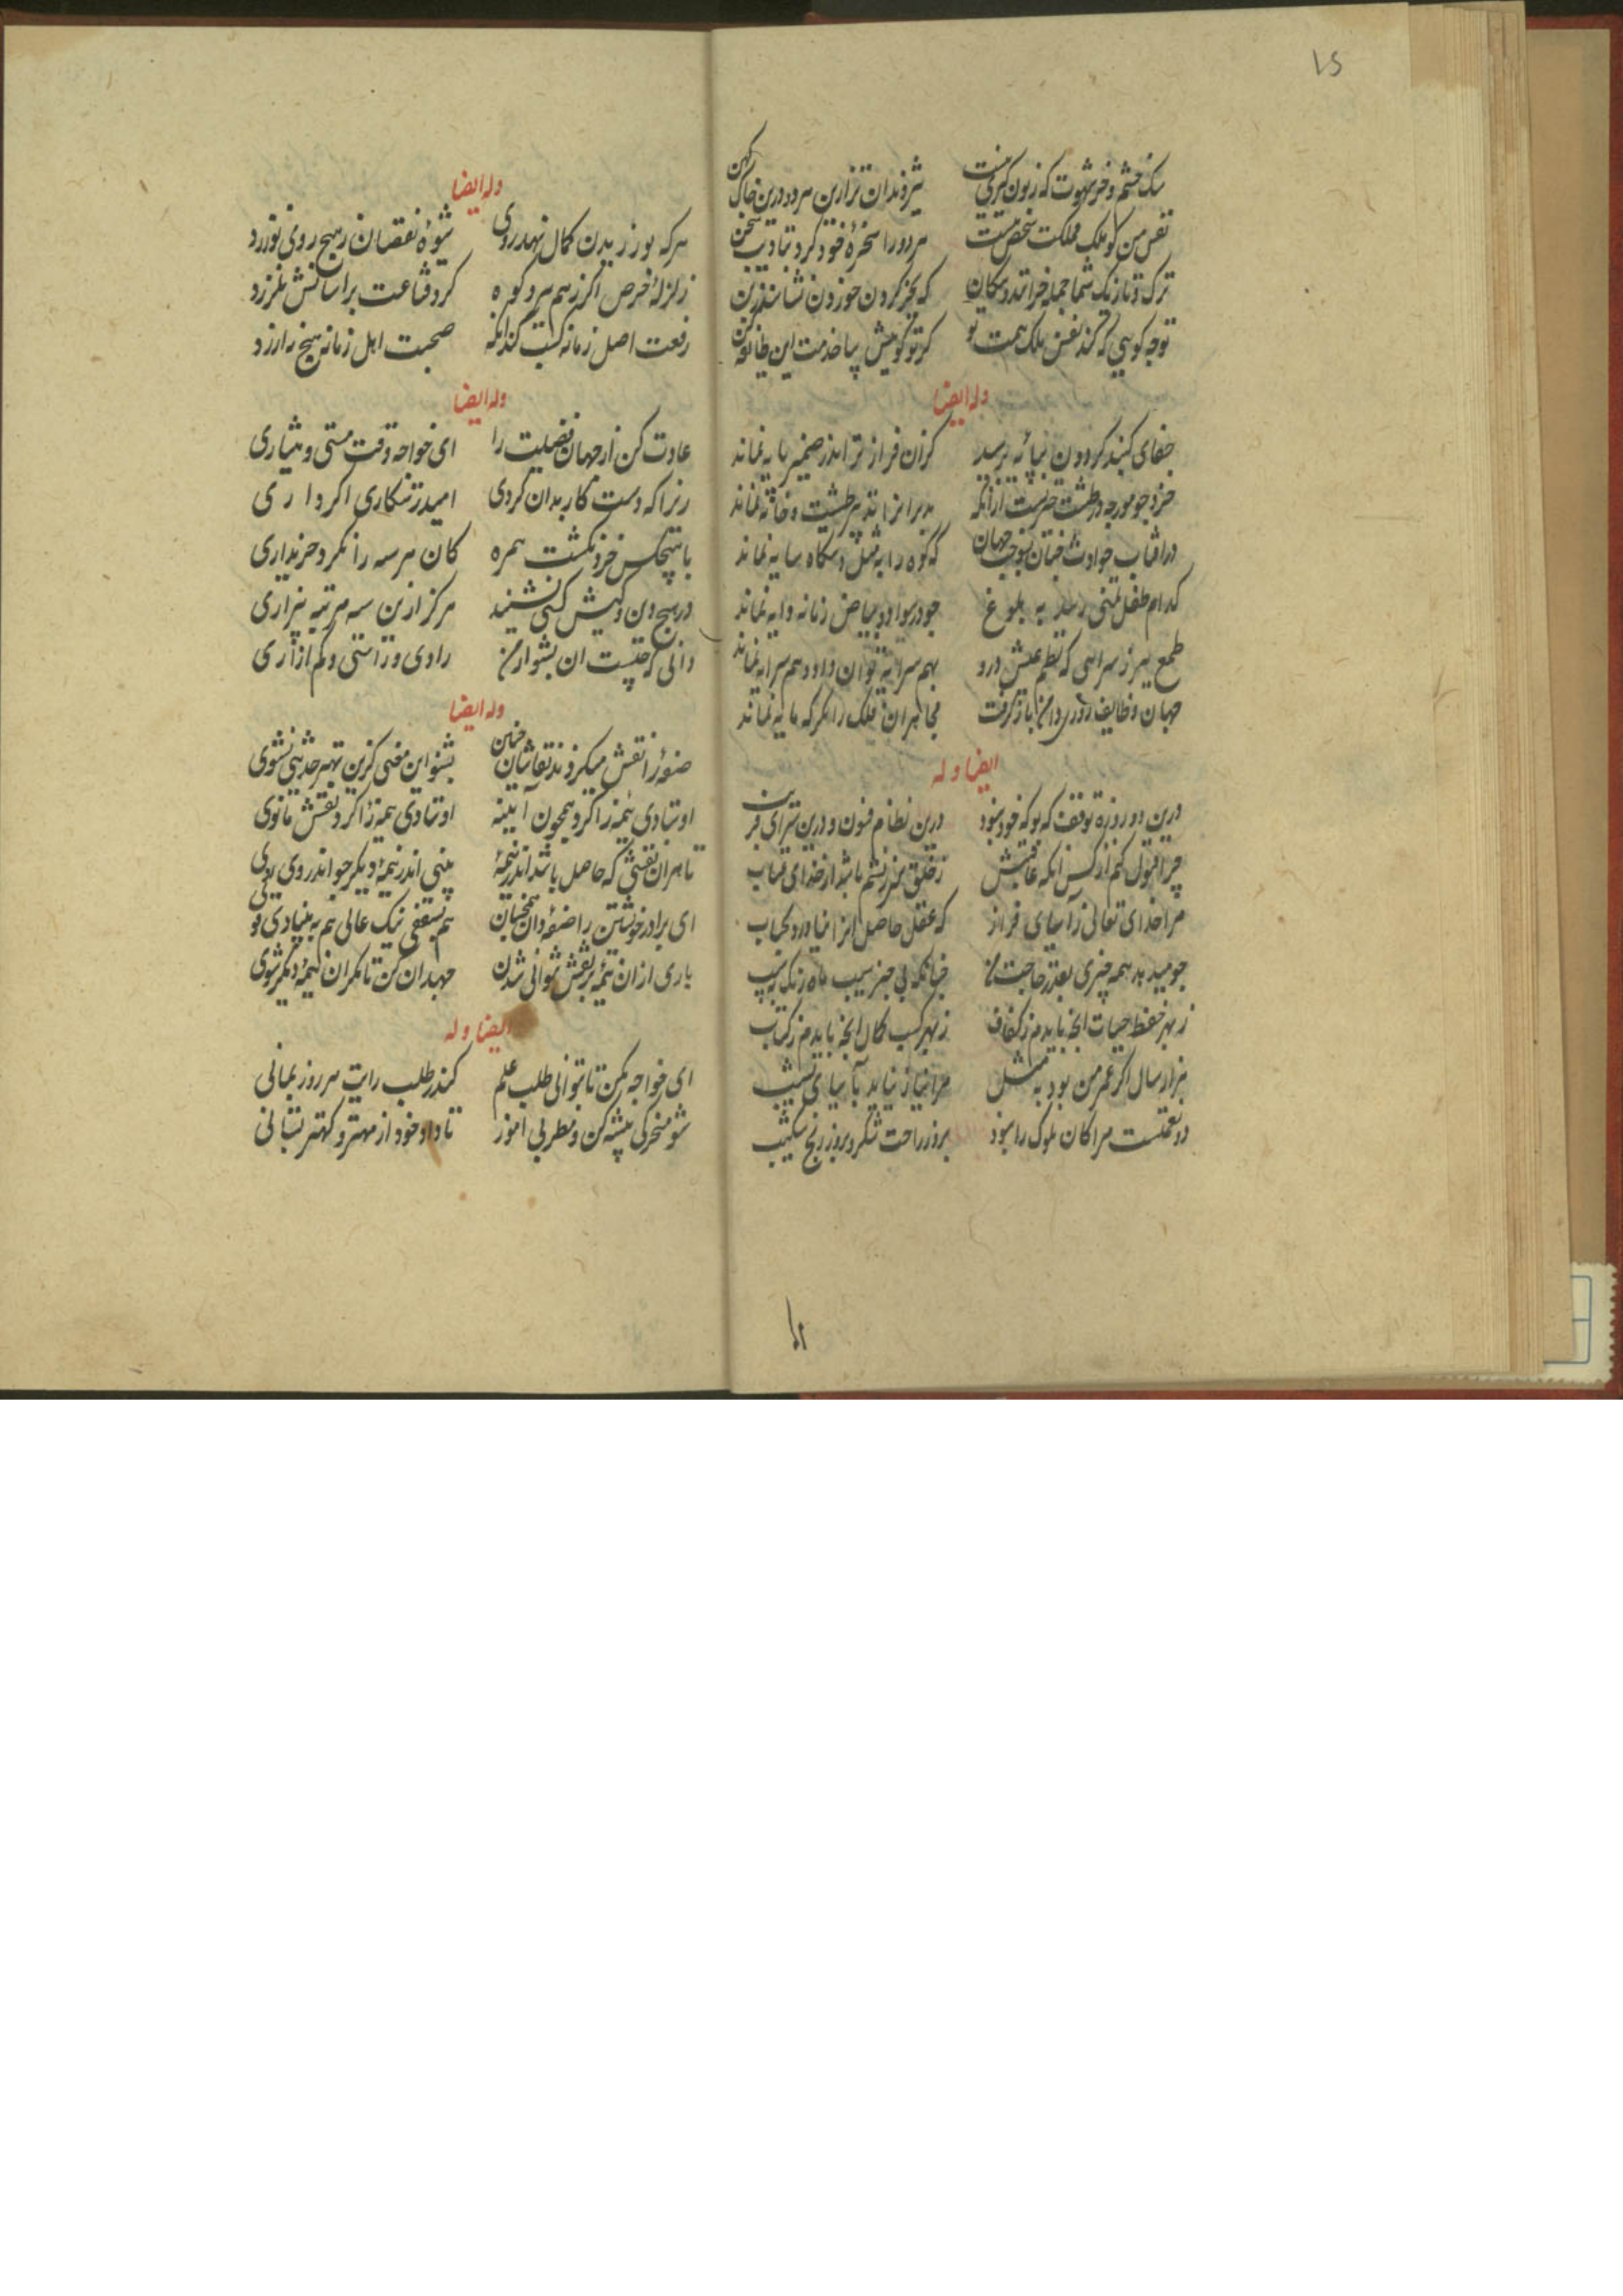 سک خشم و خر شهوت که زبون گیر منست
شیر و دندان تر ازین هر دو درین خاک کهن
نفس من کو ملک مملکت شخص منست
هر دو را سخره خود کرد بتادیب سخن
ترک و تازیک شما جمله خرانند و سکان
که بجز کردن خوردن نشناسند زبن
توچه کویی که کند نفس ملک همت تو
کر تو کوییش بیا خدمت این طایفه کن
وله ایضا
جفای کنبد کردون بپایه برسید
کزان فراز تر اندر ضمیر پایه نماند
خرد چو مورچه در طشت حیرتست ازانکه
مدبرانرا تدبیر طشت و خایه نماند
در افتاب حوادث چنان بسوخت جهان
که کوه را بمثل دستگاه سایه نماند
کدام طفل تمنی رسد به بلوغ
چو در سواد و بیاض زمانه دایه نماند
طمع ببر ز سرایی که نظم عیش درو
بهم سرایه توان داد و هم سرایه نماند
جهان وظایف روزی دامن باز گرفت
مجاهران فلک را مکر که مایه نماند
ایضا وله
درین دو روزه توقف که بو که خود نبود
درین نظام فنون و درین سرای فریب
چرا قبول کنم از کس انکه عاقبتش
ز خلق سرزنشم باشد از خدای عتاب
مرا خدای تعالی ز آسیای فراز
که عقل حاصل انرا نیاورد بحساب
چو میدهد همه چیزی بقدر حاجت من
چنانکه بی خبر سیب ماه رنگ به سیب
ز بهر حفظ حیات انچه باید م ز کفاف
ز بهر کسب کمال انچه باید م ز کتاب
هزار سال اکر عمر من بود به مثل
مرا نیاز نیاید بآسیای نشیب
دو نعمتست مرا کان ملوک را نبود
بروز راحت شکر و بروز رنج شکیب
وله ایضا
هرکه بورزیدن کمال نهد روی
شیوه نقصان ز هیچ روی نورزد
زلزله حرص اکر ز هم ببرد کوه
کرد قناعت بر آستانش نلرزد
رفعت اصل زمانه کسب کند انکه
صحبت اهل زمانه هیچ نه ارزد
وله ایضا
عادت کن از جهان فضیلت را
ای خواجه وقت مستی و هشیاری
زیرا که دست کار بدان کردی
امید رستکاری اکر داری
با هیچکس خرد نکشت همره
کان هر سه را نکرد خریداری
در هیچ دین و کیش کسی نشنید
هرکز ازین سه مرتبه بیزاری
دانی که چیست ان بشنو از من
رادی و راستی و کم ازاری
وله ایضا
صفه را نقش میکردند نقاشان چین
بشنو این معنی کزین بهتر حدیثی نشنوی
اوستادی نیمه را کرد همچون آیینه
اوستادی نیمه را کرد نقش مانوی
تا هران نقشی که حاصل باشد اندر نیمه
بینی اندر نیمه دیکر چو اندر وی بوی
ای برادر خویشتن را صفه دان همچنان
هم بسقفی نیک عالی هم به بنیادی قوی
باری ار ان نیمه پر نقش نتوانی شدن
جهد ان کن تا مکر ان نیمه دیکر شوی
ایضا وله
ای خواجه مکن تا بتوانی طلب علم
کندر طلب راتب هر روز بمانی
شو مسخرکی پیشه کن و مطربی اموز
تا داد خود از مهتر و کهتر بستانی